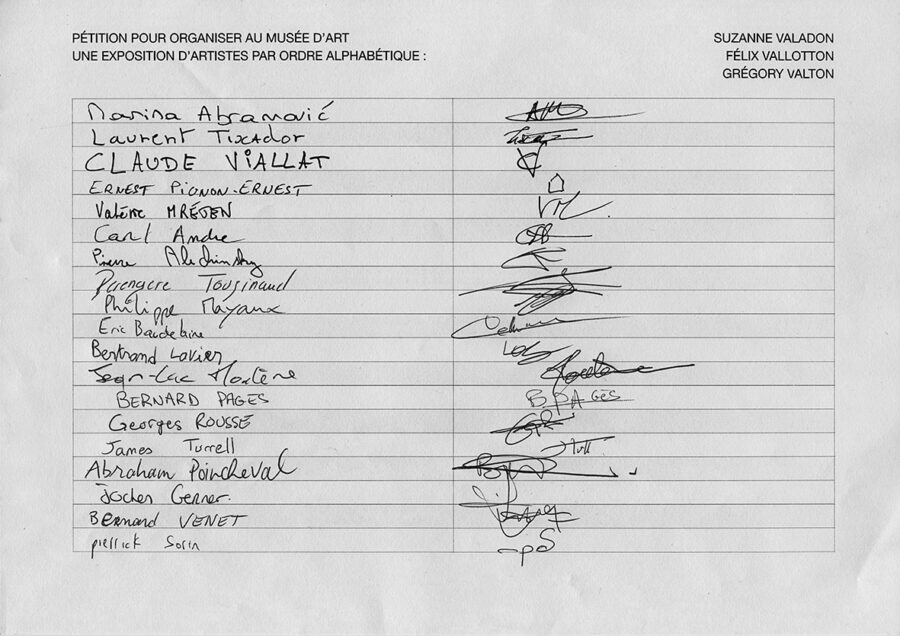 PÉTITION POUR ORGANISER AU MUSÉE D'ART
UNE EXPOSITION D'ARTISTES PAR ORDRE ALPHABÉTIQUE :
SUZANNE VALADON
FÉLIX VALLOTTON
GRÉGORY VALTON
Marina Abramović
Laurent TIXADOR
CLAUDE VIALLAT
ERNEST PIGNON-ERNEST
Valérie MRÉJEN
Carl Andre
Pierre Alechinsky
Bérengère Touzinaud
Philippe Mayaux
Eric Baudelaire
Bertrand Lavier
Jean-Luc Moulène
BERNARD PAGÈS B PAGÈS
Georges ROUSSE GR
James Turrell
Abraham Poincheval
Jochen Gerner.
BERNARD VENET
pierrick Sorin -pS